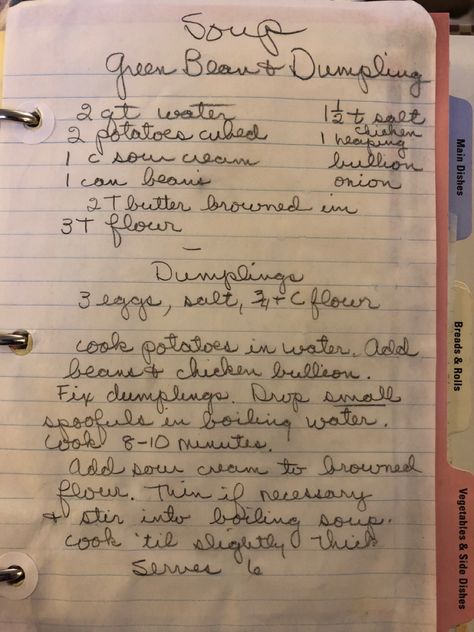 Soup
Green Bean & Dumpling
2 qt water
2 potatoes cubed
1 c sour cream
1 can beans
2 T butter browned in
3 T flour
1½ t salt
1 heaping chicken
bullion
onion
Dumplings
3 eggs, salt, ¾+ C flour
cook potatoes in water. Add
beans & chicken bullion.
Fix dumplings. Drop small
spoofuls in boiling water.
Cook 8-10 minutes.
Add sour cream to browned
flour. Thin if necessary
& stir into boiling soup.
Cook 'til slightly thick
Serves 6
Main Dishes
Breads & Rolls
Vegetables & Side Dishes